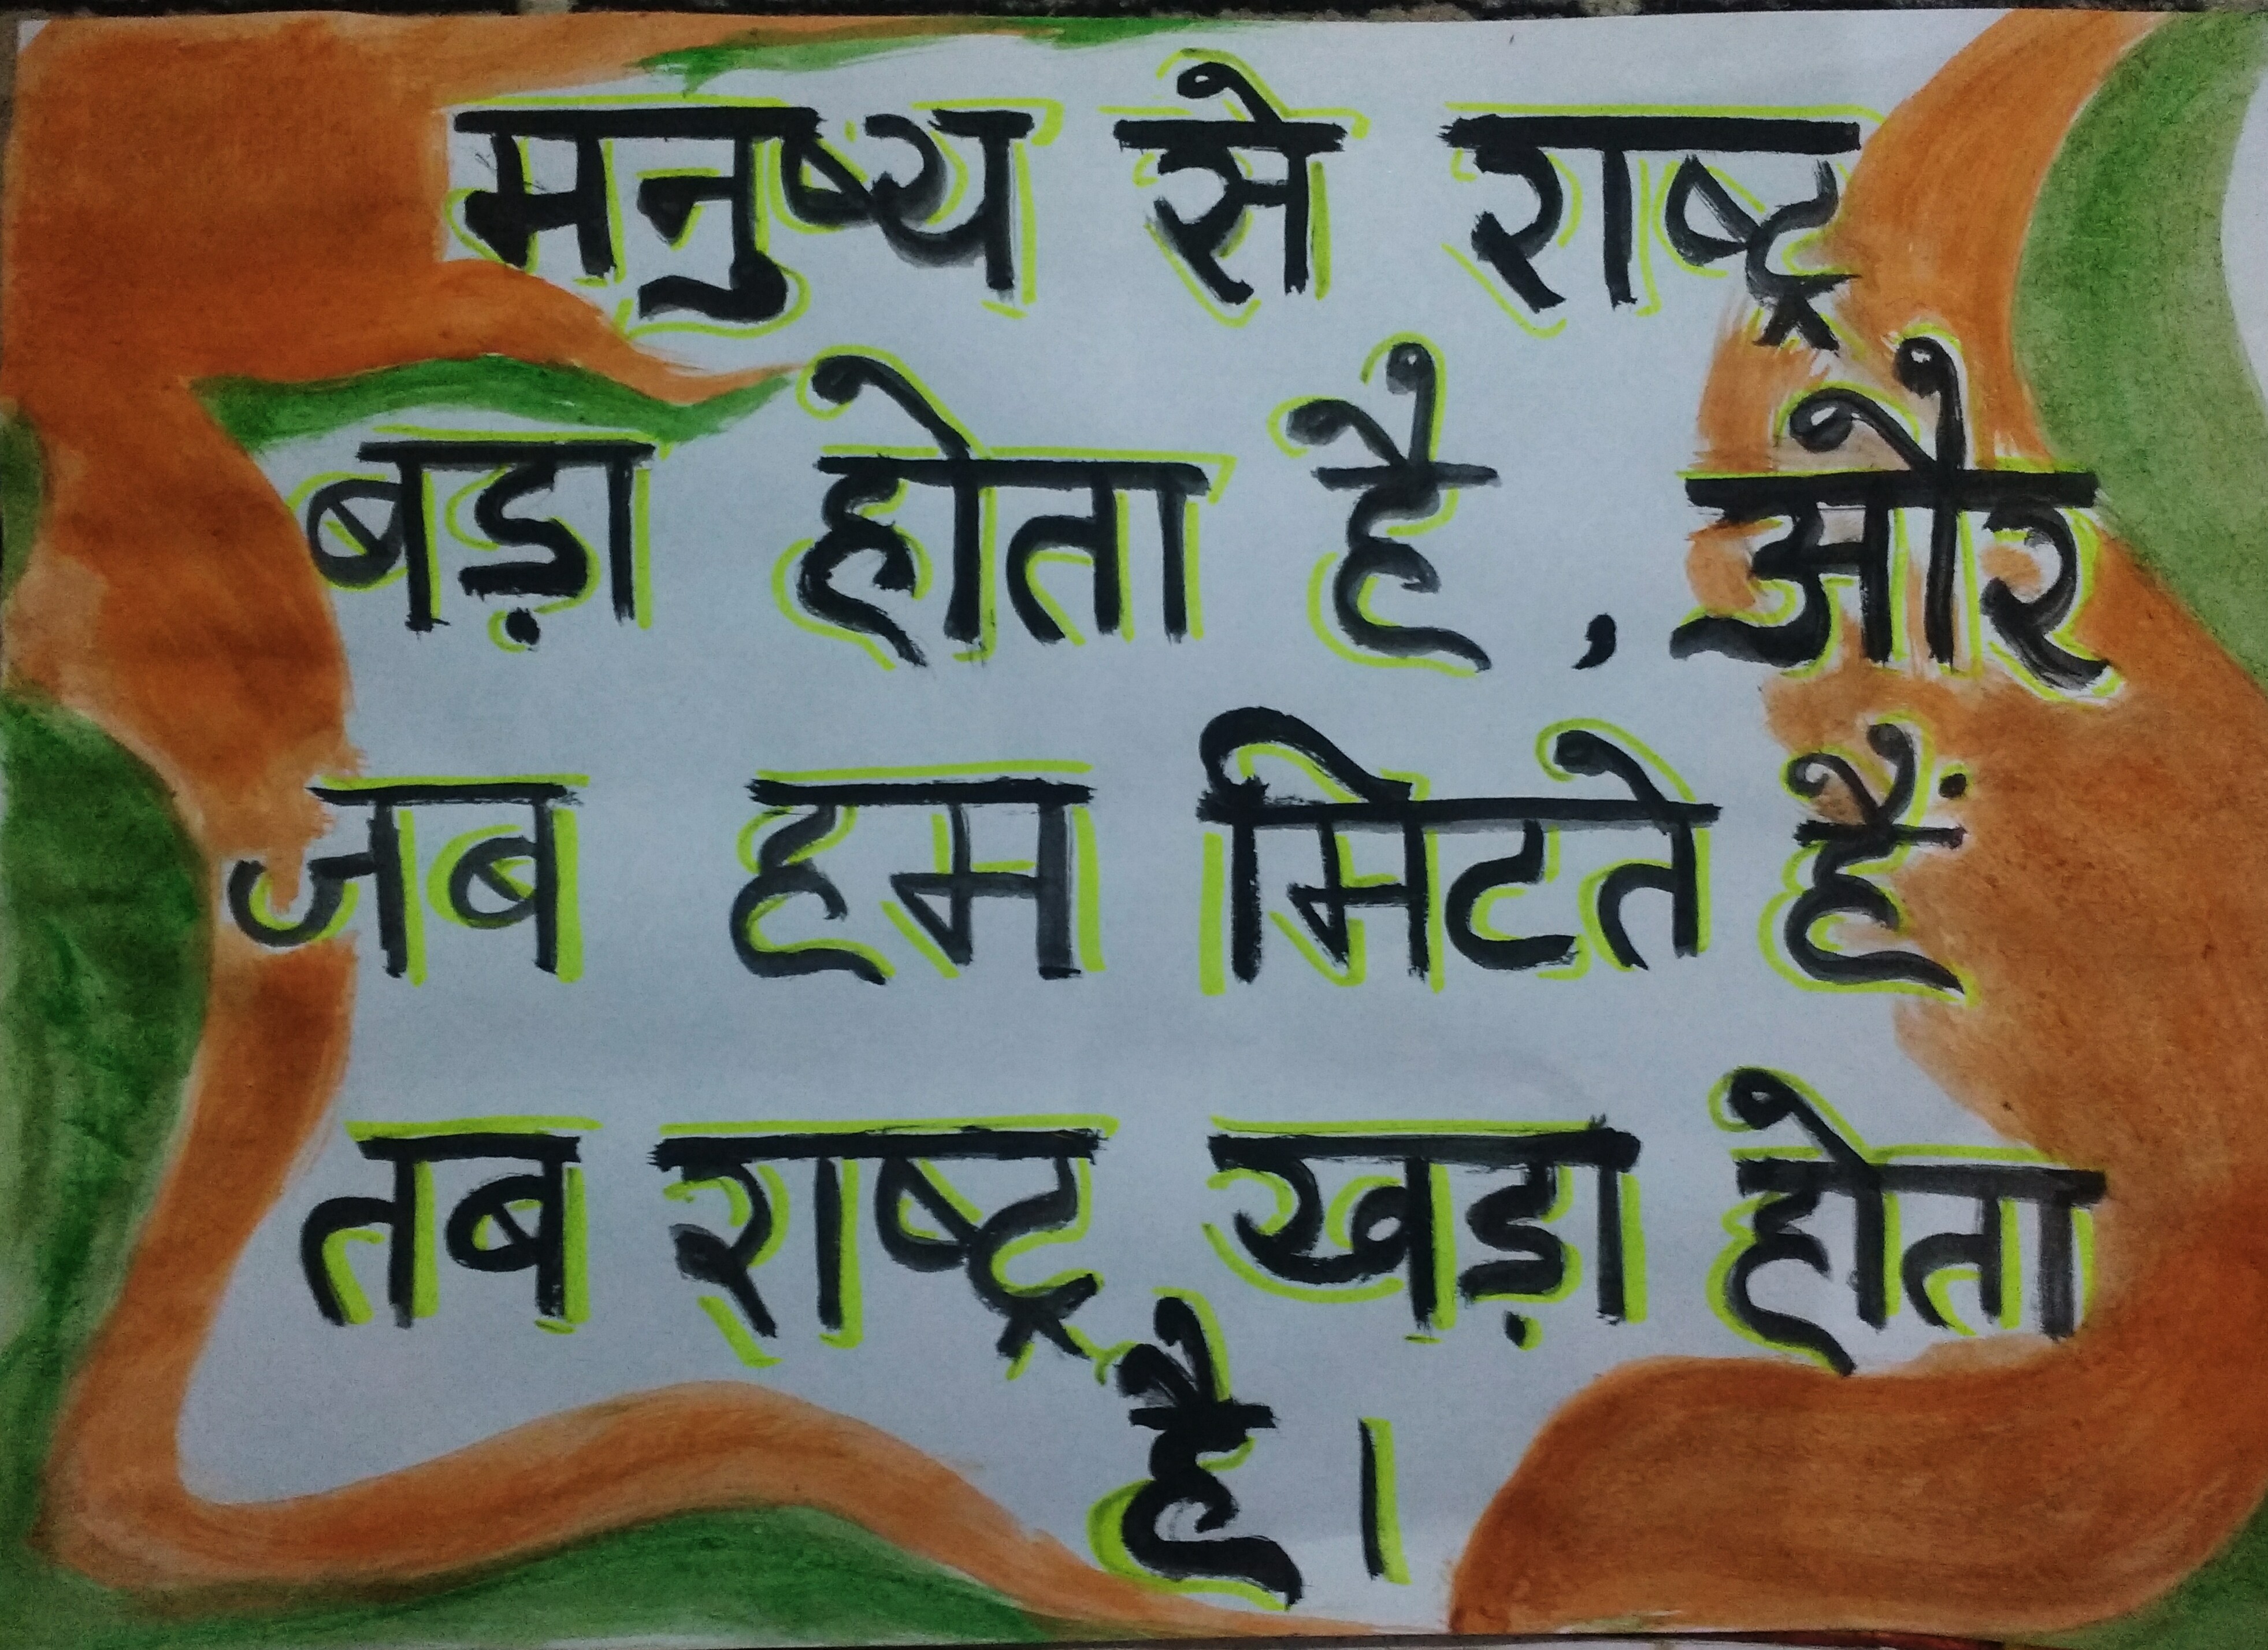 मनुष्य से राष्ट्र
बड़ा होता है , और
जब हम मिटते हैं
तब राष्ट्र खड़ा होता
है ।